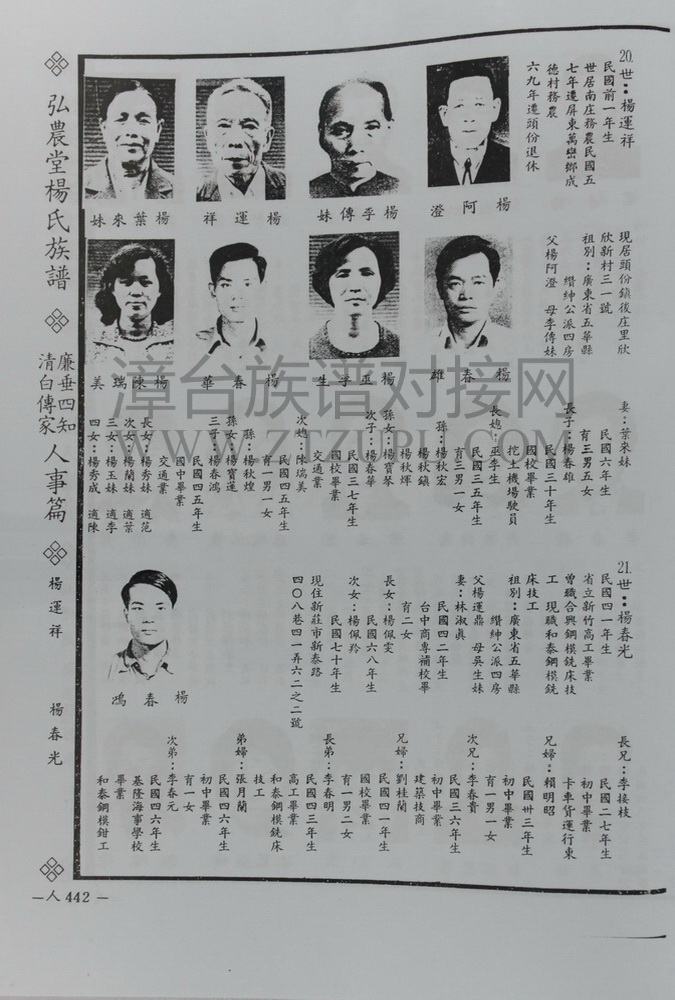 20.世：楊運祥
民國前一年生
世居南庄務農民國五
七年遷屏東萬巒鄉成
德村務農
六九年遷頭份退休
楊阿澄
楊李傳妹
楊運祥
楊葉來妹
現居頭份鎮後庄里欣
欣新村三一號
祖別：廣東省五華縣
縉紳公派四房
父楊阿澄　母李傳妹
楊春雄
楊巫李生
楊春華
楊陳瑞美
妻：葉來妹
民國六年生
育三男五女
長子：楊春雄
民國三十年生
國校畢業
挖土機場駛員
長媳：巫李生
民國三五年生
育三男一女
孫：楊秋宏
楊秋鎮
楊秋煇
孫女：楊寶琴
次子：楊春華
民國三七年生
國校畢業
交通業
次媳：陳瑞美
民國四五年生
育一男一女
孫：楊秋煌
孫女：楊寶蓮
三子：楊春鴻
民國四五年生
國中畢業
交通業
長女：楊秀妹　適范
次女：楊蘭妹　適葉
三女：楊玉妹　適李
四女：楊秀成　適陳
21.世：楊春光
民國四一年生
省立新竹高工畢業
曾職合興鋼模銑床技
工　現職和泰鋼模銑
床技工
祖別：廣東省五華縣
縉紳公派四房
父楊運鼎　母吳生妹
妻：林淑眞
民國四二年生
台中商專補校畢
育二女
長女：楊佩雯
民國六八年生
次女：楊佩羚
民國七十年生
現住新莊市新泰路
四〇八巷四一弄六二之二號
楊春鴻
長兄：李接枝
民國二七年生
初中畢業
卡車貨運行東
兄婦：賴明昭
民國卅三年生
初中畢業
育一男一女
次兄：李春貴
民國三六年生
初中畢業
建築技商
兄婦：劉桂蘭
民國四一年生
國校畢業
育一男二女
長弟：李春明
民國四三年生
高工畢業
和泰鋼模銑床
技工
弟婦：張月蘭
民國四六年生
初中畢業
育一女
次弟：李春元
民國四六年生
基隆海事學校
畢業
和泰鋼模鉗工
弘農堂楊氏族譜
廉垂四知
清白傳家
人事篇
楊運祥
楊春光
—人 442 —
漳台族谱对接网
WWW.ZTZUPU.COM